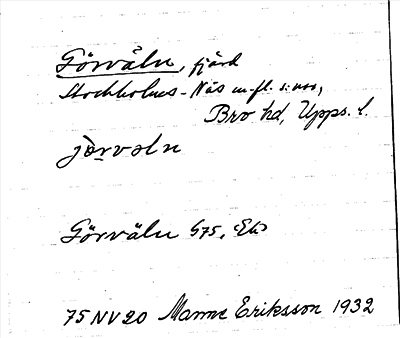 Görväln, fjärd
Stockholms-Näs m.fl. s:nar,
Bro hd, Upps. l.
jörvaln
Görväln G75, Ek
75 NV 20 Manne Eriksson 1932